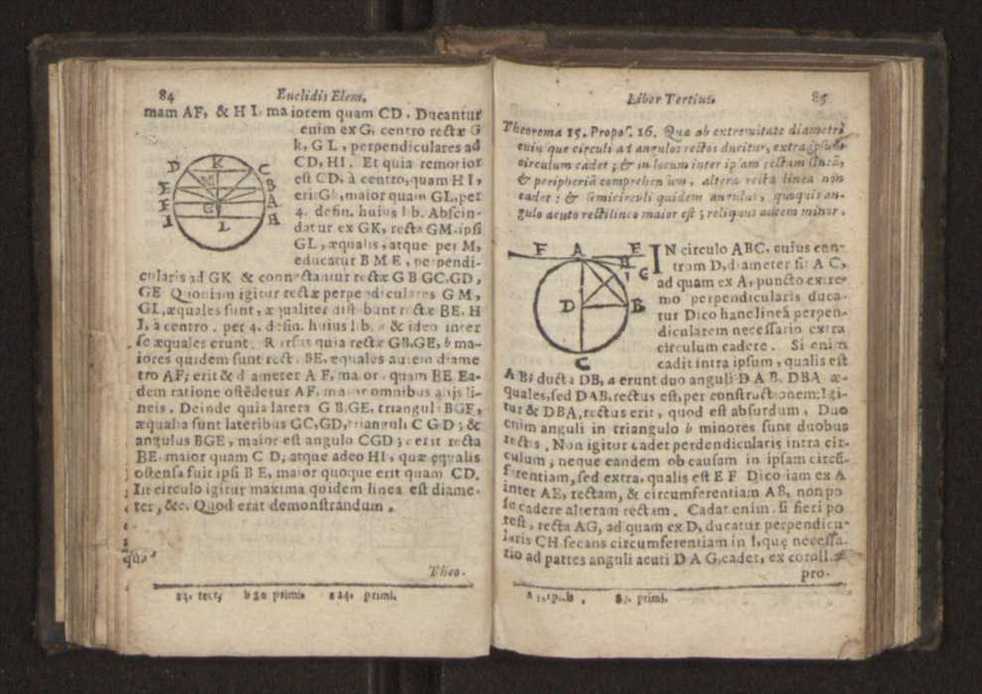 84 Euclidis Elem.
mam AF, & HI, maiorem quam CD. Ducantur
enim ex G, centro rectæ G
k, GL, perpendiculares ad
CD, HI. Et quia remotior
est CD, à centro, quam HI,
erit Gk, maior quam GL, per
4. defin. huius lib. Abscin-
datur ex GK, recta GM. ipsi
GL, æqualis, atque per M,
educatur BME, perpendi-
cularis ad GK & connectantur rectæ GB GC. GD,
GE Quoniam igitur rectæ perpendiculares GM,
GL, æquales sunt, æqualiter distabunt rectæ BE. H
I, à centro. per 4. defin. huius lib. & ideo inter
se æquales erunt. Rursus quia rectæ GB, GE, b ma-
iores quidem sunt rect. BE, æquales autem diame
tro AF; erit & diameter AF, maior quam BE Ea-
dem ratione ostẽdetur AF, maior omnibus alijs li-
neis. Deinde quia latera GB. GE, trianguli BGF,
æqualia sunt lateribus GC, GD, trianguli CGD; &
angulus BGE, maior est angulo CGD; c erit recta
BE. maior quam CD, atque adeo HI, quæ ęqualis
ostensa fuit ipsi BE, maior quoque erit quam CD.
In circulo igitur maxima quidem linea est diame-
ter, &c. Quod erat demonstrandum.
Theo-
b 20 primi. c 24. primi.
D K C
M
E B
F A
G
I H
L
Liber Tertius. 85
Theorema 15. Propos. 16. Quæ ab extremitate diametri
cuiusque circuli ad angulos rectos ducitur, extra ipsum
circulum cadet; & in locum inter ipsam rectam lineã,
& peripheriã comprehensum, altera recta linea non
cadet: & semicirculi quidem angulus, quouis an-
gulo acuto rectilineo maior est; reliquus autem minor.
IN circulo ABC, cuius cen-
trum D, diameter sit AC,
ad quam ex A, puncto extre-
mo perpendicularis duca-
tur Dico hanc lineã perpen-
dicularem necessario extra
circulum cadere. Si enim
cadit intra ipsum, qualis est
AB; ducta DB, a erunt duo anguli DAB, DBA æ-
quales, sed DAB, rectus est, per constructionem: Igi-
tur & DBA, rectus erit, quod est absurdum. Duo
enim anguli in triangulo b minores sunt duobus
rectis. Non igitur cadet perdendicularis intra cir-
culum; neque eandem ob causam in ipsam circũ-
ferentiam, sed extra, qualis est EF Dico iam ex A
inter AE, rectam, & circumferentiam AB, non po
se cadere alteram rectam. Cadat enim, si fieri po
test, recta AG, ad quam ex D, ducatur perpendicu-
laris CH secans circumferentiam in I, quę necessa-
rio ad partes anguli acuti DAG, cadet, ex coroll.
pro-
primi.
F A E
H
I G
D B
C